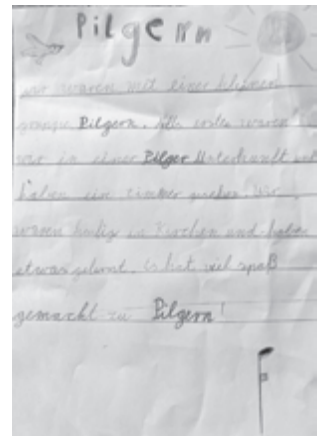 Pilgern
wir waren mit einer kleinen
gruppe Pilgern. Als erstes waren
wir in einer Pilger Unterkunft und
haben ein zimmer
waren in Kirchen und haben
etwas gelernt. Es hat viel spaß
gemacht zu Pilgern!